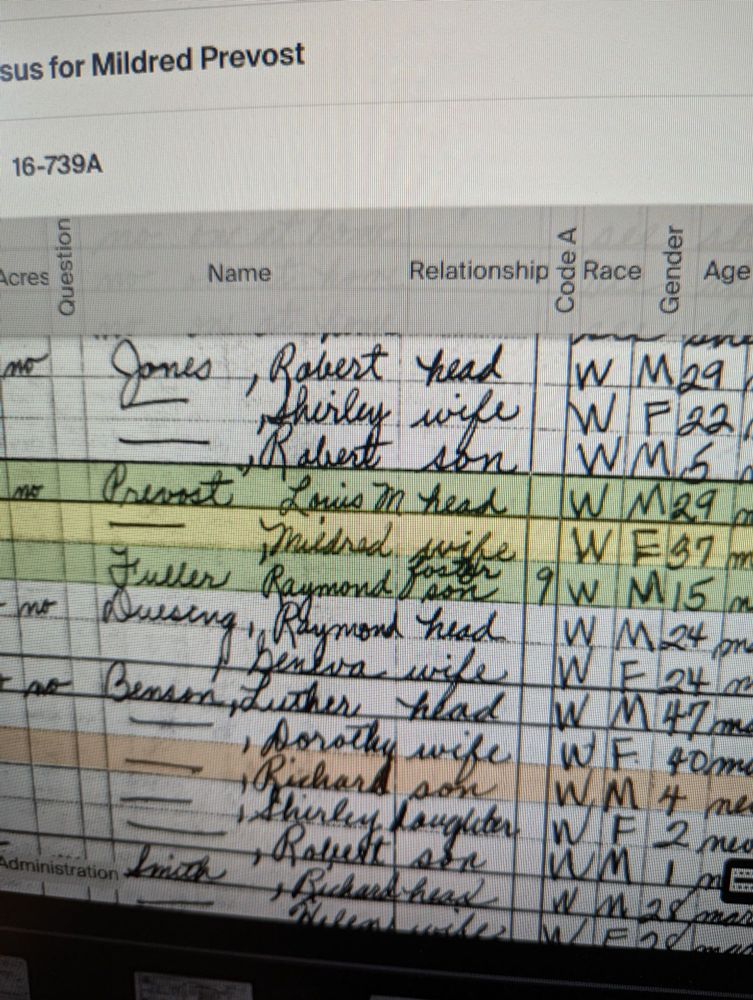 sus for Mildred Prevost
16-739A
Acres Question Name Relationship Code A Race Gender Age
no Jones, Robert head W M 29
—, Shirley wife W F 22
—, Robert son W M 5
no Prevost Louis M head W M 29 m
—, Mildred wife W F 37 m
Fuller Raymond foster son 9 W M 15 m
- no Duesing, Raymond head W M 24 m
, Geneva wife W F 24 m
- no Benson, Luther head W M 47 m
—, Dorothy wife W F 40 m
—, Richard son W M 4 ne
—, Shirley daughter W F 2 nev
—, Robert son W M 1
Administration Smith, Richard head W M 28 mar
—, Helen wife W F 28